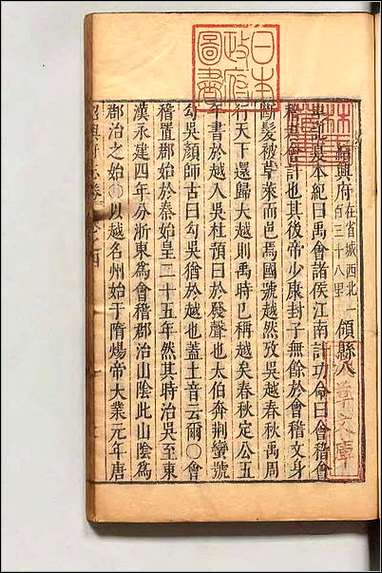 日本政府圖書
紹興府 在省城西北一百三十八里 領縣八
淺草文庫
史記夏本紀曰禹會諸侯江南計功命曰會稽會
稽者會計也其後帝少康封子無餘於會稽文身
斷髮被草萊而邑焉國號越然攷吳越春秋禹周
行天下還歸大越則禹時已稱越矣春秋定公五
年書於越入吳杜預曰於發聲也太伯奔荆蠻號
勾吳顏師古曰勾吳猶於越也蓋土音云爾○會
稽置郡始於秦始皇二十五年然其時治吳至東
漢永建四年分浙東爲會稽郡治山陰此山陰爲
郡治之始○以越名州始于隋煬帝大業元年唐
紹興府志卷之